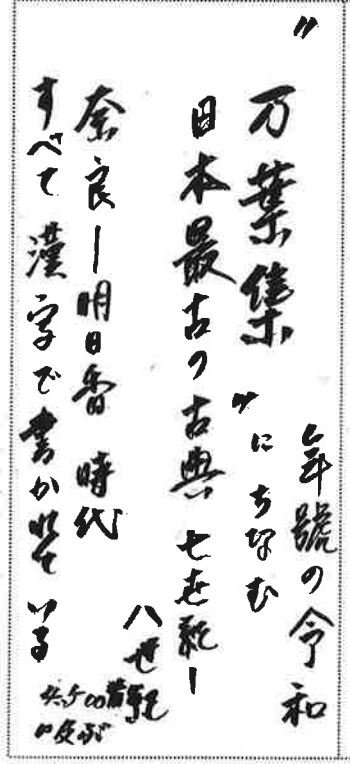 年號の令和
"万葉集"にちなむ
日本最古の古典 七世紀ー
八世紀
奈良ー明日香時代
すべて漢字で書かれている
4,500首
に及ぶ